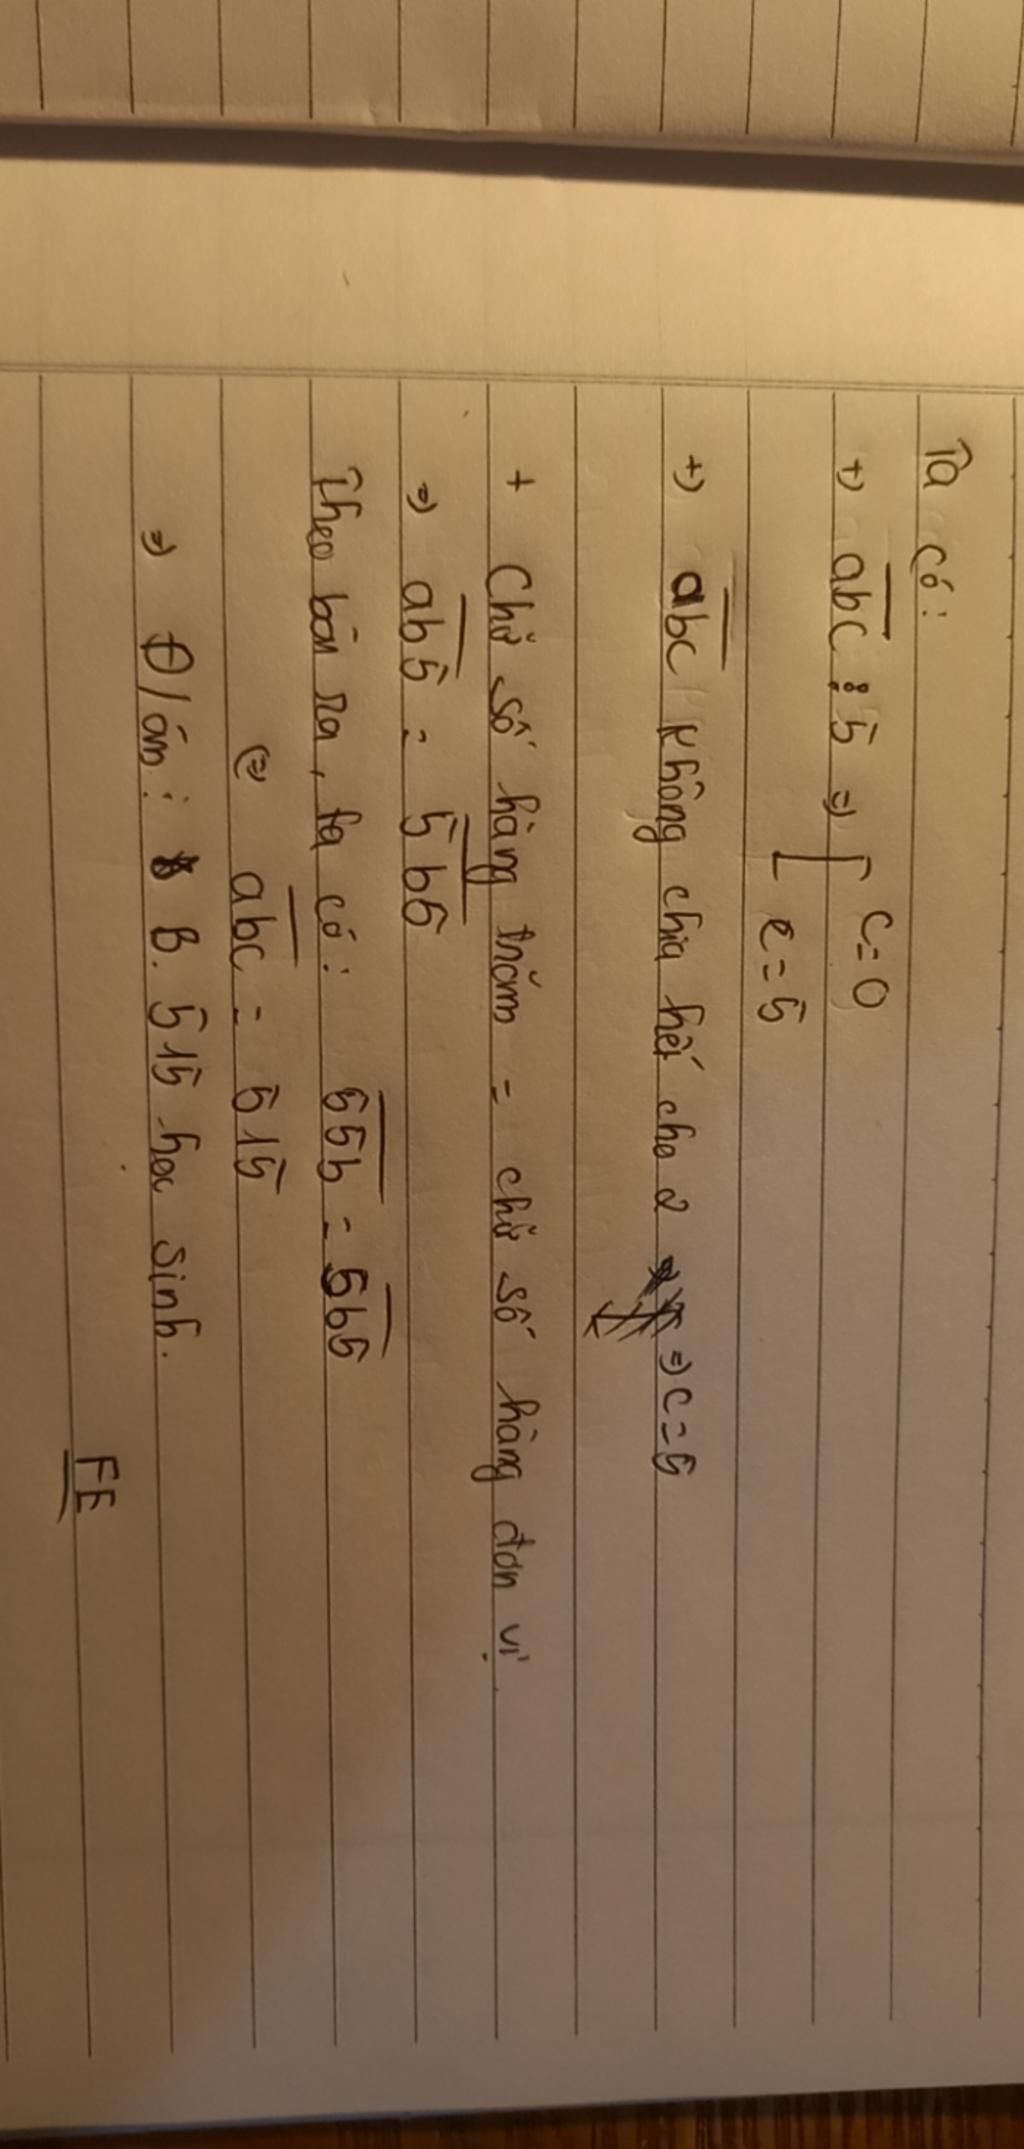 Ta có:
+) abc ⋮ 5 => [ c=0
c=5
+) abc không chia hết cho 2 => c=5
+ Chữ số hàng trăm = chữ số hàng đơn vị.
=> ab5 = 5b5
Theo bài ra, ta có: 55b = 5b5
(=) abc = 515
=> Đ/án: B. 515 học sinh.
FE